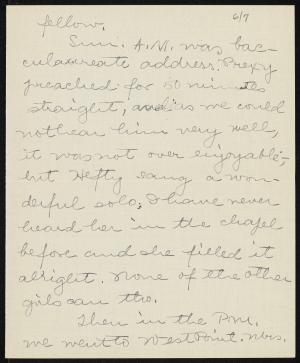 6/7
fellow.
Sun. A.M. was bac-
calaureate address. Prexy
preached for 50 minutes
straight, and as we could
not hear him very well,
it was not over enjoyable,
but Hefty sang a won-
derful solo, I have never
heard her in the chapel
before and she filled it
alright. None of the other
girls can tho.
Then in the P.M.
we went to West Point. Mrs.